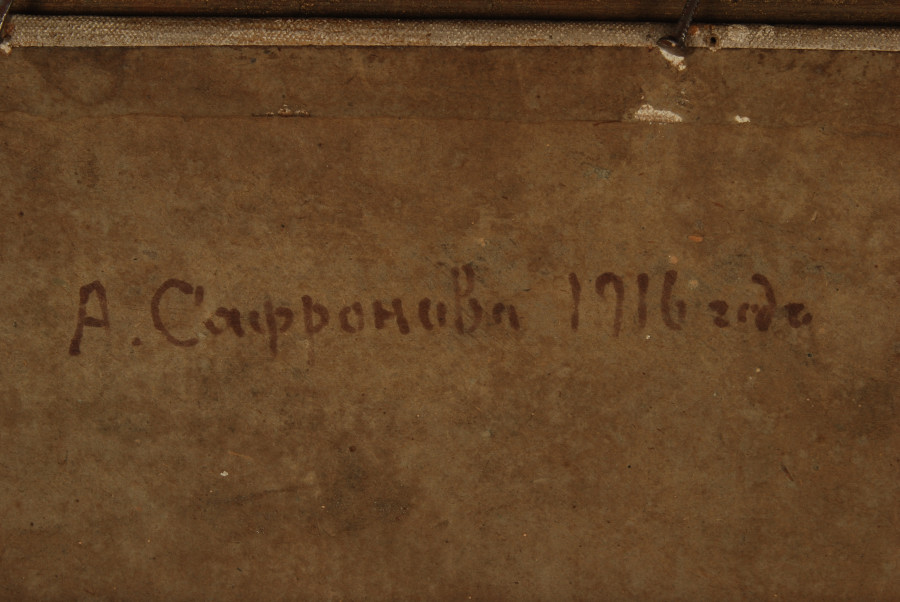 А. Сафронова 1916 года